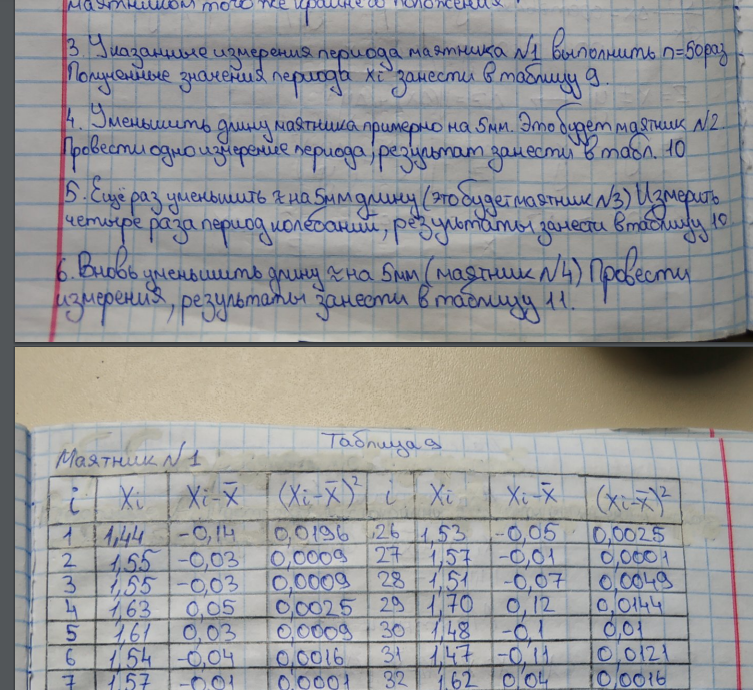 маятником того же крайнего положения.
3. Указанные измерения периода маятника №1 выполнить n=50раз
Полученные значения периода Xi занести в таблицу 9.
4. Уменьшить длину маятника примерно на 5мм. Это будет маятник №2
Провести одно измерение периода, результат занести в табл. 10
5. Ещё раз уменьшить ≈ на 5мм длину (это будет маятник №3) Измерить
четыре раза период колебаний, результаты занести в таблицу 10
6. Вновь уменьшить длину ≈ на 5мм (маятник №4) Провести
измерения, результаты занести в таблицу 11.
Таблица 9
Маятник №1
i Xi Xi-X̄ (Xi-X̄)² i Xi Xi-X̄ (Xi-X̄)²
1 1,44 -0,14 0,0196 26 1,53 -0,05 0,0025
2 1,55 -0,03 0,0009 27 1,57 -0,01 0,0001
3 1,55 -0,03 0,0009 28 1,51 -0,07 0,0049
4 1,63 0,05 0,0025 29 1,70 0,12 0,0144
5 1,61 0,03 0,0009 30 1,48 -0,1 0,01
6 1,54 -0,04 0,0016 31 1,47 -0,11 0,0121
7 1,57 -0,01 0,0001 32 1,62 0,04 0,0016